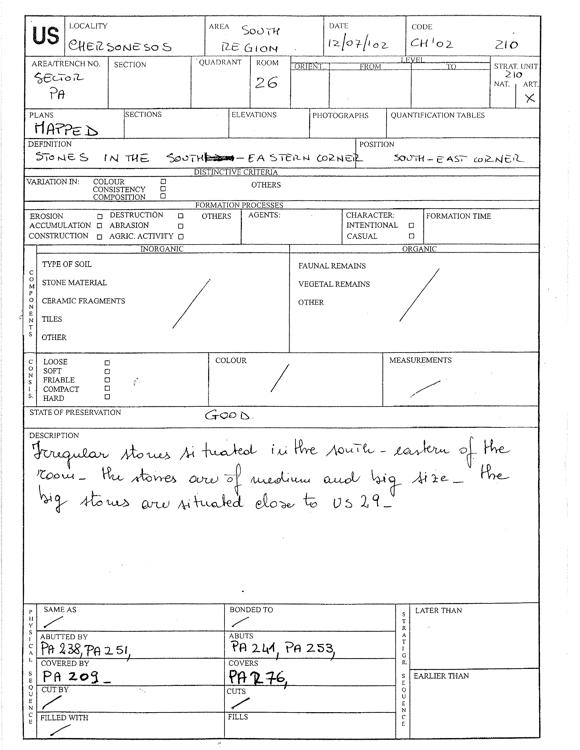 US
LOCALITY
CHERSONESOS
AREA SOUTH
REGION
DATE
12/07/'02
CODE
CH'02 210
AREA/TRENCH NO.
SECTOR
PA
SECTION
QUADRANT
ROOM
26
LEVEL
ORIENT. FROM TO
STRAT. UNIT
210
NAT. ART.
X
PLANS
MAPPED
SECTIONS
ELEVATIONS
PHOTOGRAPHS
QUANTIFICATION TABLES
DEFINITION
STONES IN THE SOUTH-EASTERN CORNER
POSITION
SOUTH-EAST CORNER
DISTINCTIVE CRITERIA
VARIATION IN: COLOUR
CONSISTENCY
COMPOSITION
OTHERS
FORMATION PROCESSES
EROSION DESTRUCTION OTHERS
ACCUMULATION ABRASION
CONSTRUCTION AGRIC. ACTIVITY
AGENTS:
CHARACTER:
INTENTIONAL
CASUAL
FORMATION TIME
COMPONENTS
INORGANIC
TYPE OF SOIL
STONE MATERIAL
CERAMIC FRAGMENTS
TILES
OTHER
ORGANIC
FAUNAL REMAINS
VEGETAL REMAINS
OTHER
CONSIS.
LOOSE
SOFT
FRIABLE
COMPACT
HARD
COLOUR
MEASUREMENTS
STATE OF PRESERVATION
GOOD
DESCRIPTION
Irregular stones situated in the south-eastern of the
room- the stones are of medium and big size- the
big stones are situated close to US 29-
PHYSICAL SEQUENCE
SAME AS
BONDED TO
ABUTTED BY
PA 238, PA 251,
ABUTS
PA 241, PA 253,
COVERED BY
PA 209-
COVERS
PA 276,
CUT BY
CUTS
FILLED WITH
FILLS
STRATIGR. SEQUENCE
LATER THAN
EARLIER THAN